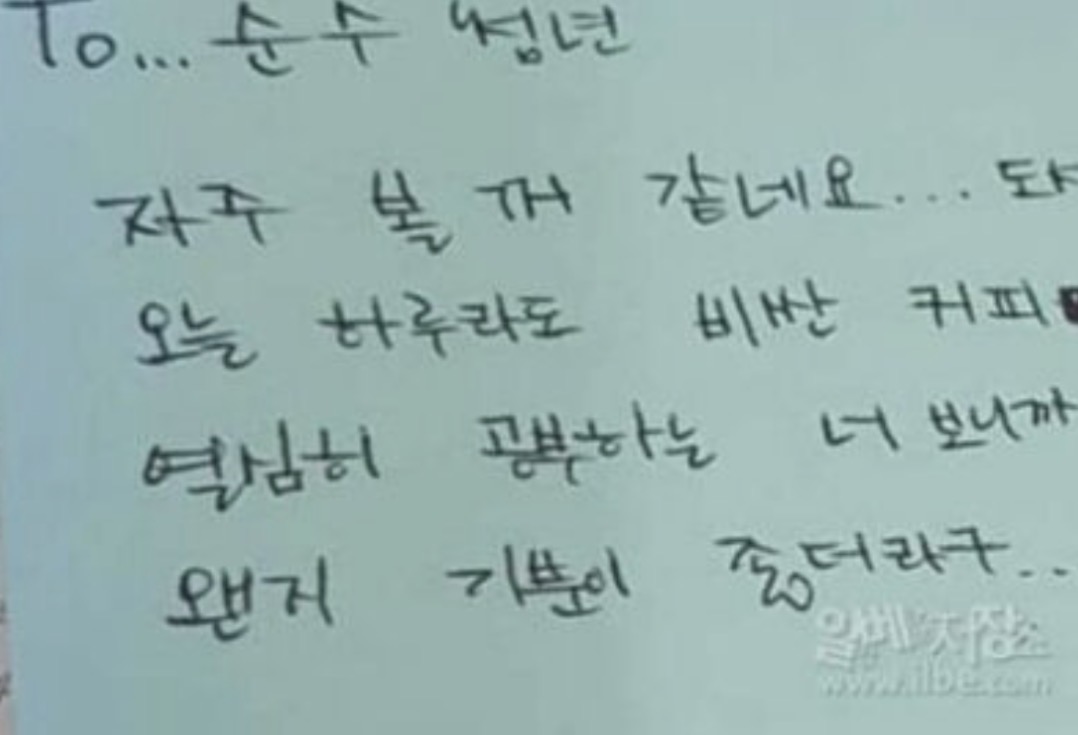 To... 순수
자주 볼 꺼 같네요...
오늘 하루라도 비싼 커피
열심히 공부하는 너 보니까
왠지 기분이 좋더라구..
일베저장소
www.ilbe.com